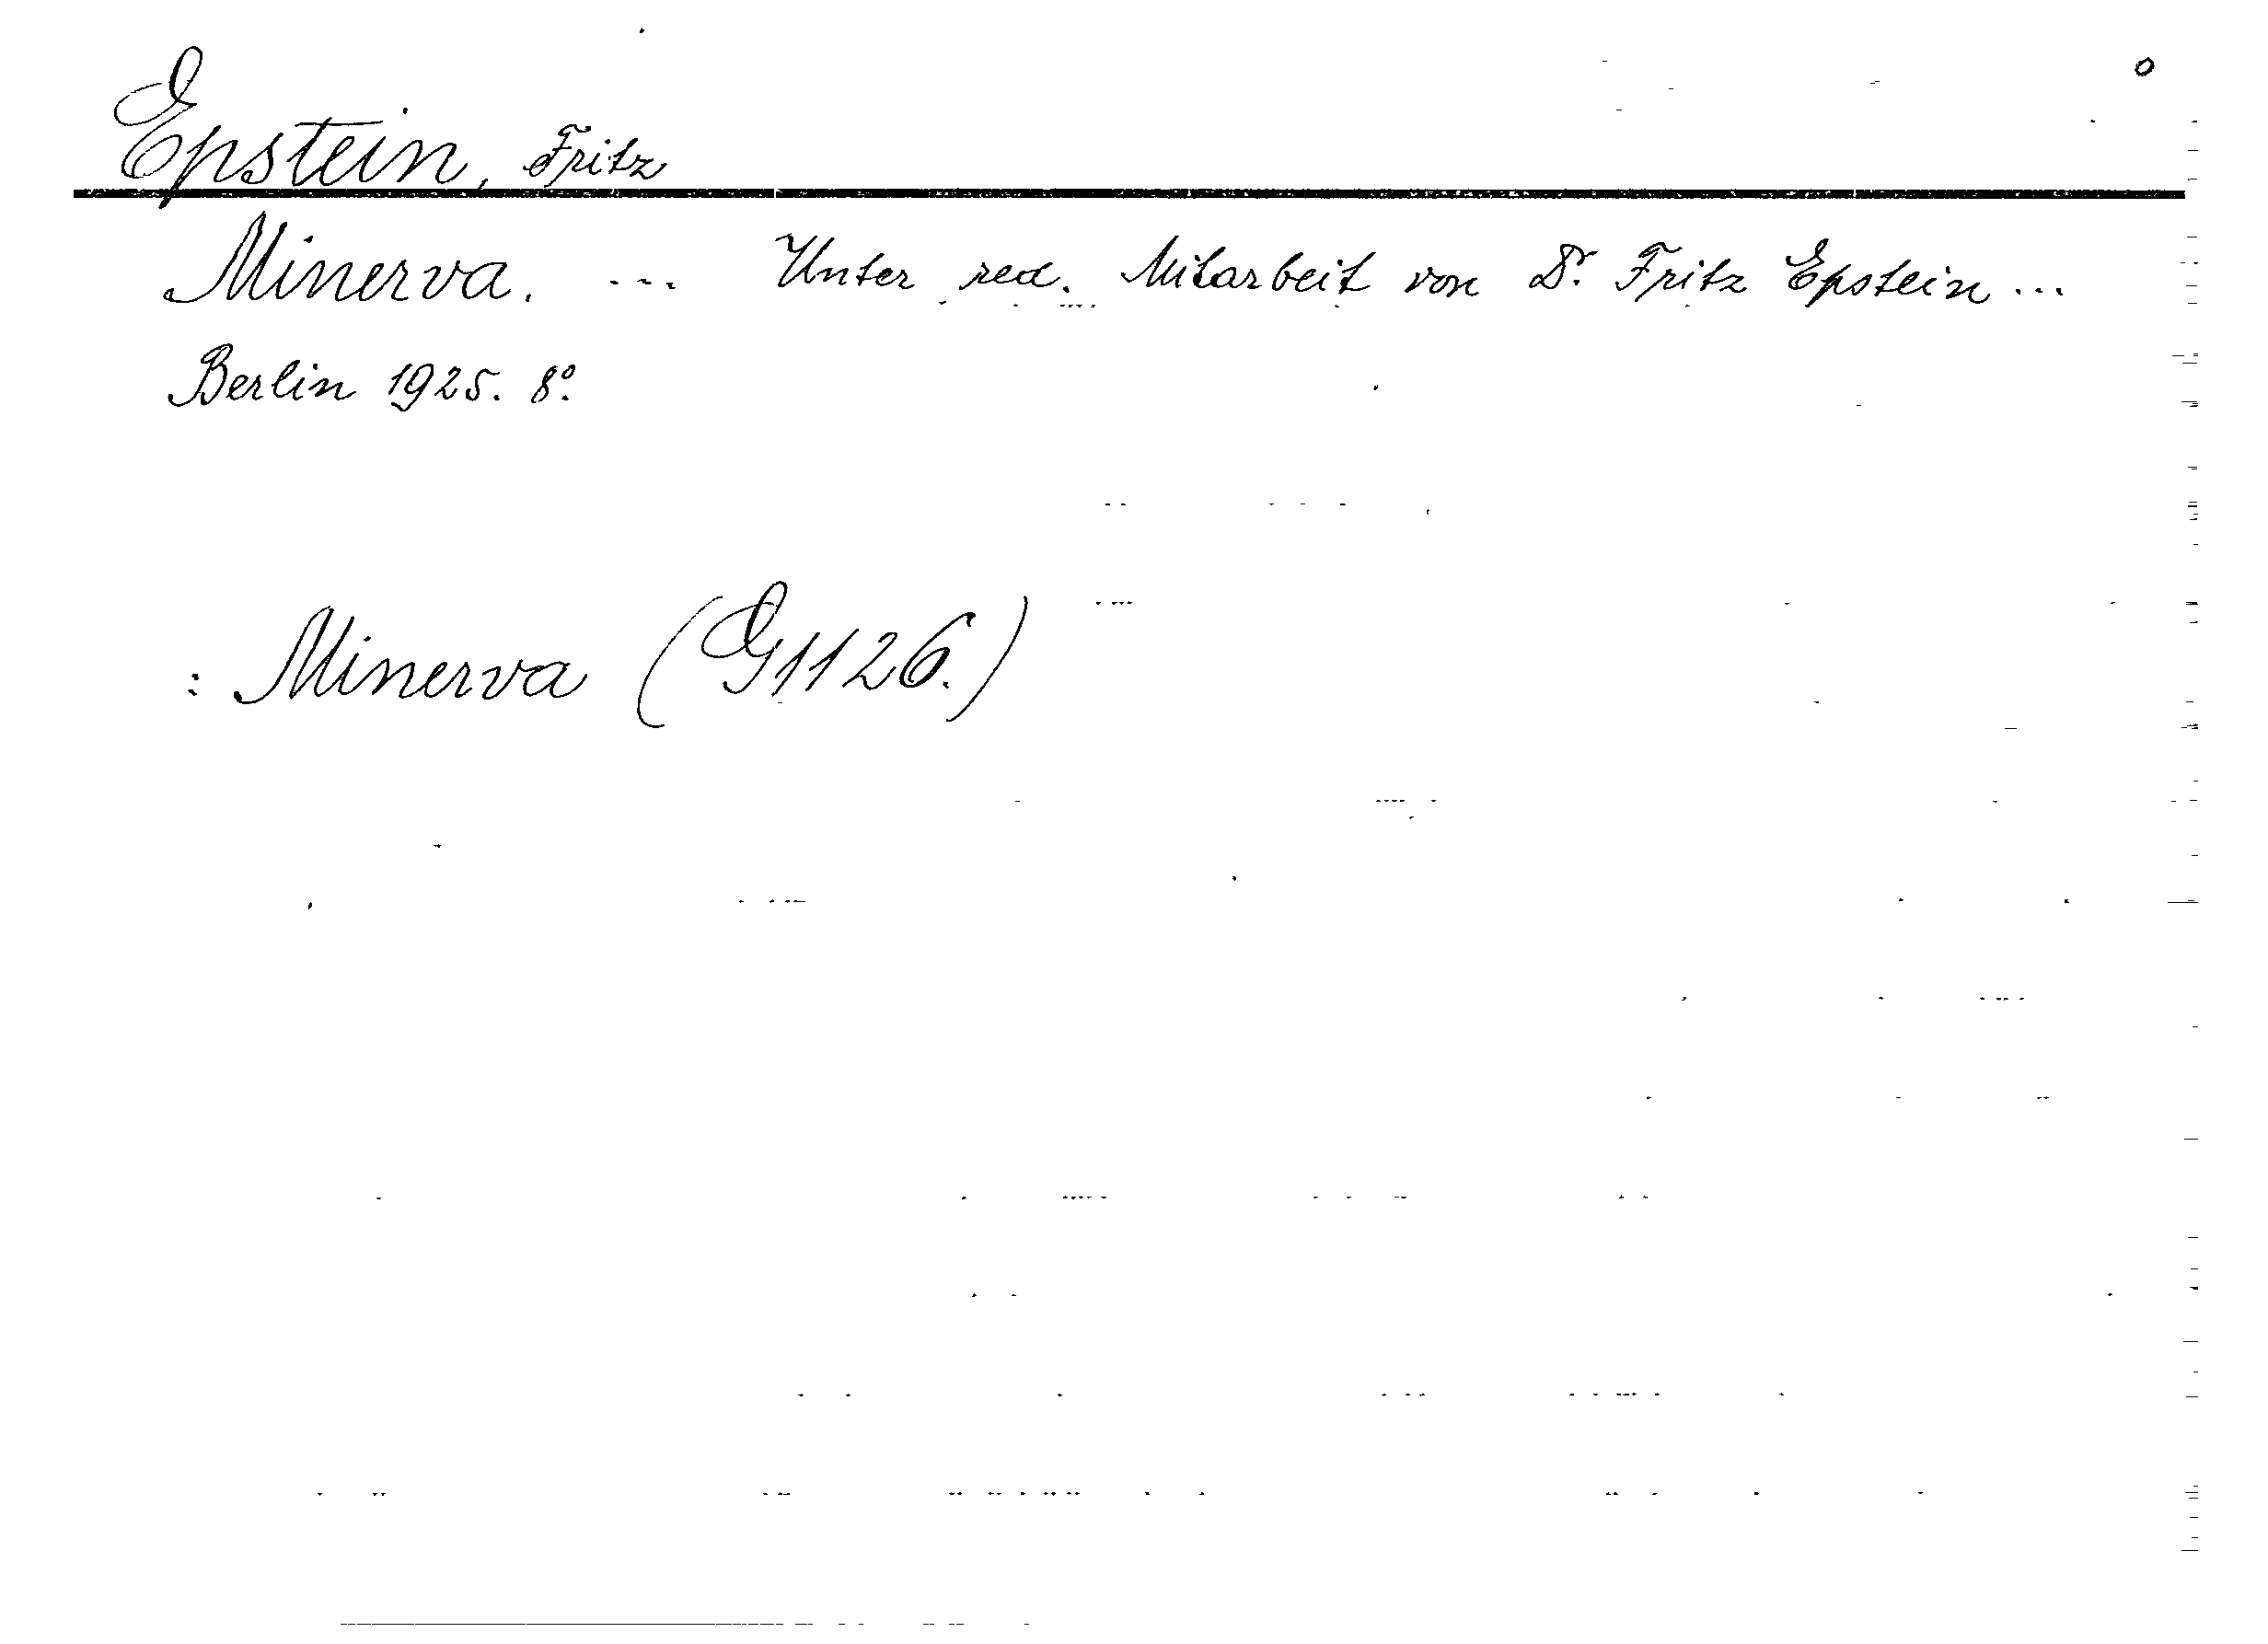 o
Epstein, Fritz
Minerva. ... Unter red. Mitarbeit von Dr. Fritz Epstein ...
Berlin 1925. 8°.
: Minerva (G1126.)